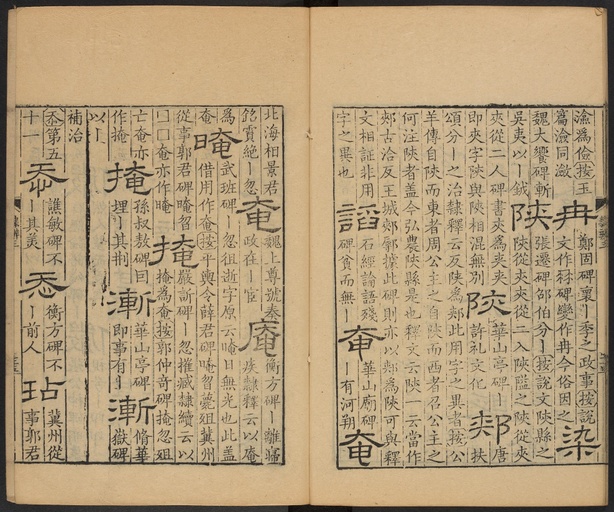 瀹為儉按玉
篇淪同瀲
冉
鄭固碑褱丨季之政事按說
文作冄碑變作冉今俗因之
染
魏大饗碑斬
吳夷以丨鉞
陝
張遷碑邵伯分丨按說文陝縣之
陝從夾夾從二入陝隘之陝從夾
夾從二人碑書夾為夾夾
即夾字陝與陜相混無別
陝
華山亭碑丨
許礼文化
郟
唐
扶
頌分丨之治隸釋云反陝為郟此用字之異者按公
羊傳自陝而東者周公主之自陝而西者召公主之
何注陝者蓋今弘農陝縣是也釋文云陝一云當作
郟古洽反王城郟鄏據此碑則亦以郟為陝可與釋
文相証非用
字之異也
謟
石經論語殘
碑貧而無丨
奄
華山廟碑
丨有河朔
奄
北海相景君
銘賈絶丨忽
奄
魏上尊號奏
政在丨宦
庵
衡方碑丨離
疾隸釋云以庵
為
奄
晻
武班碑丨忽徂逝字原云晻日無光也此蓋
借用作奄按平輿令薛君碑晻曶薨殂冀州
從事郭君碑晻曶
□□奄亦作晻
掩
嚴訢碑丨忽摧臧隸續云以
掩為奄按郭仲奇碑掩忽殂
亡奄亦
作掩
掩
孫叔敖碑回
埋丨其刑
漸
華山亭碑
即事有丨
漸
脩華
嶽碑
以丨
補治
忝第五
十一
忝
譙敏碑不
丨其美
忝
衡方碑不
丨前人
玷
冀州從
事郭君